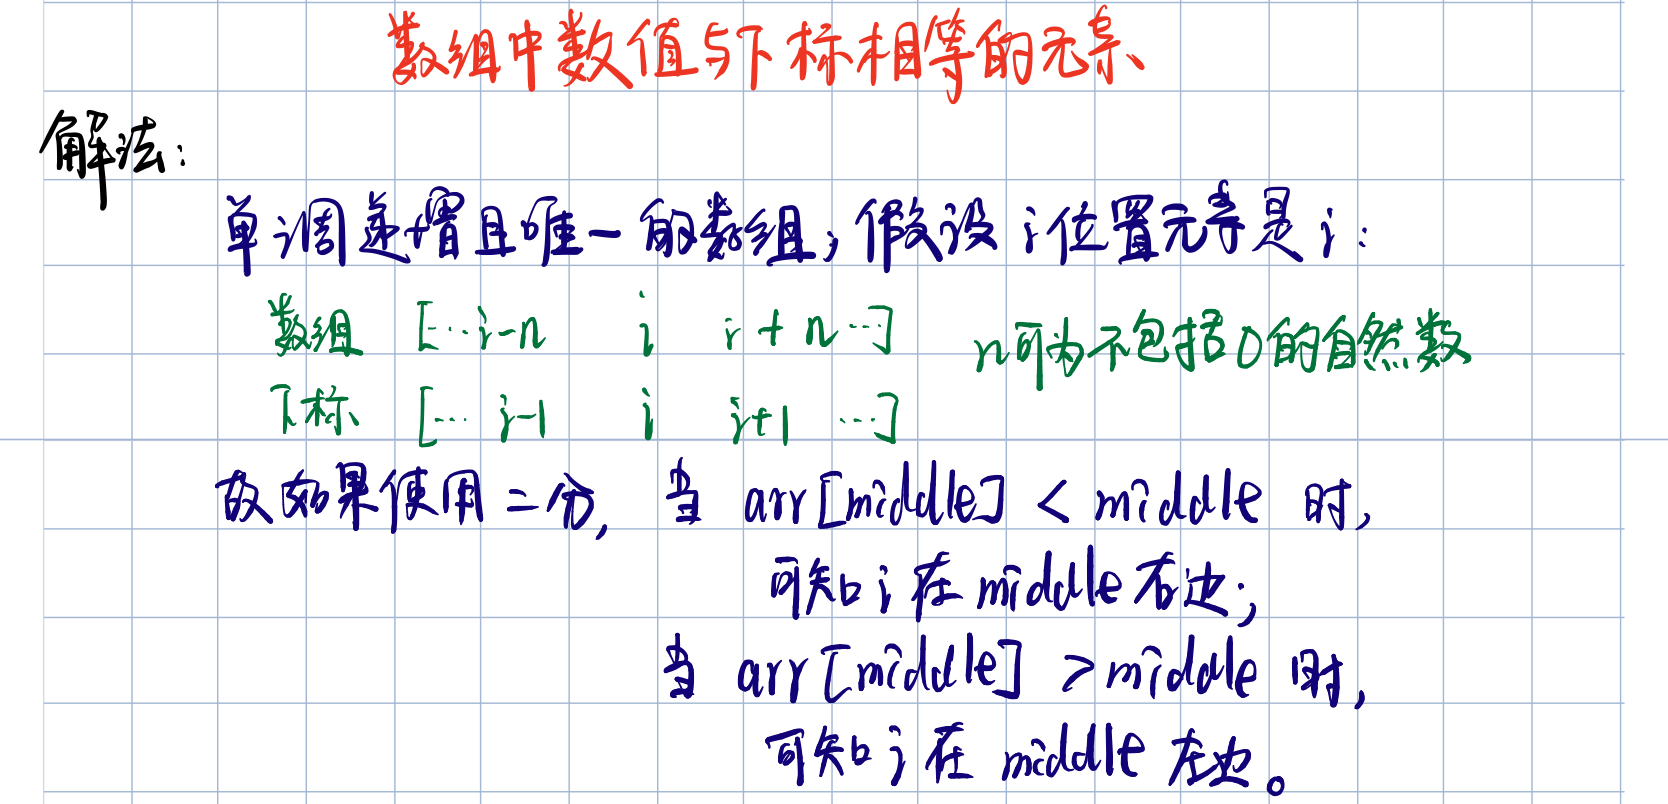 数组中数值与下标相等的元素
解法:
单调递增且唯一的数组,假设i位置元素是i:
数组 [...i-n i i+n...] n可为不包括0的自然数
下标 [... i-1 i i+1 ...]
故如果使用二分, 当 arr[middle] < middle 时,
可知i在middle右边;
当 arr[middle] > middle 时,
可知i在 middle 左边。